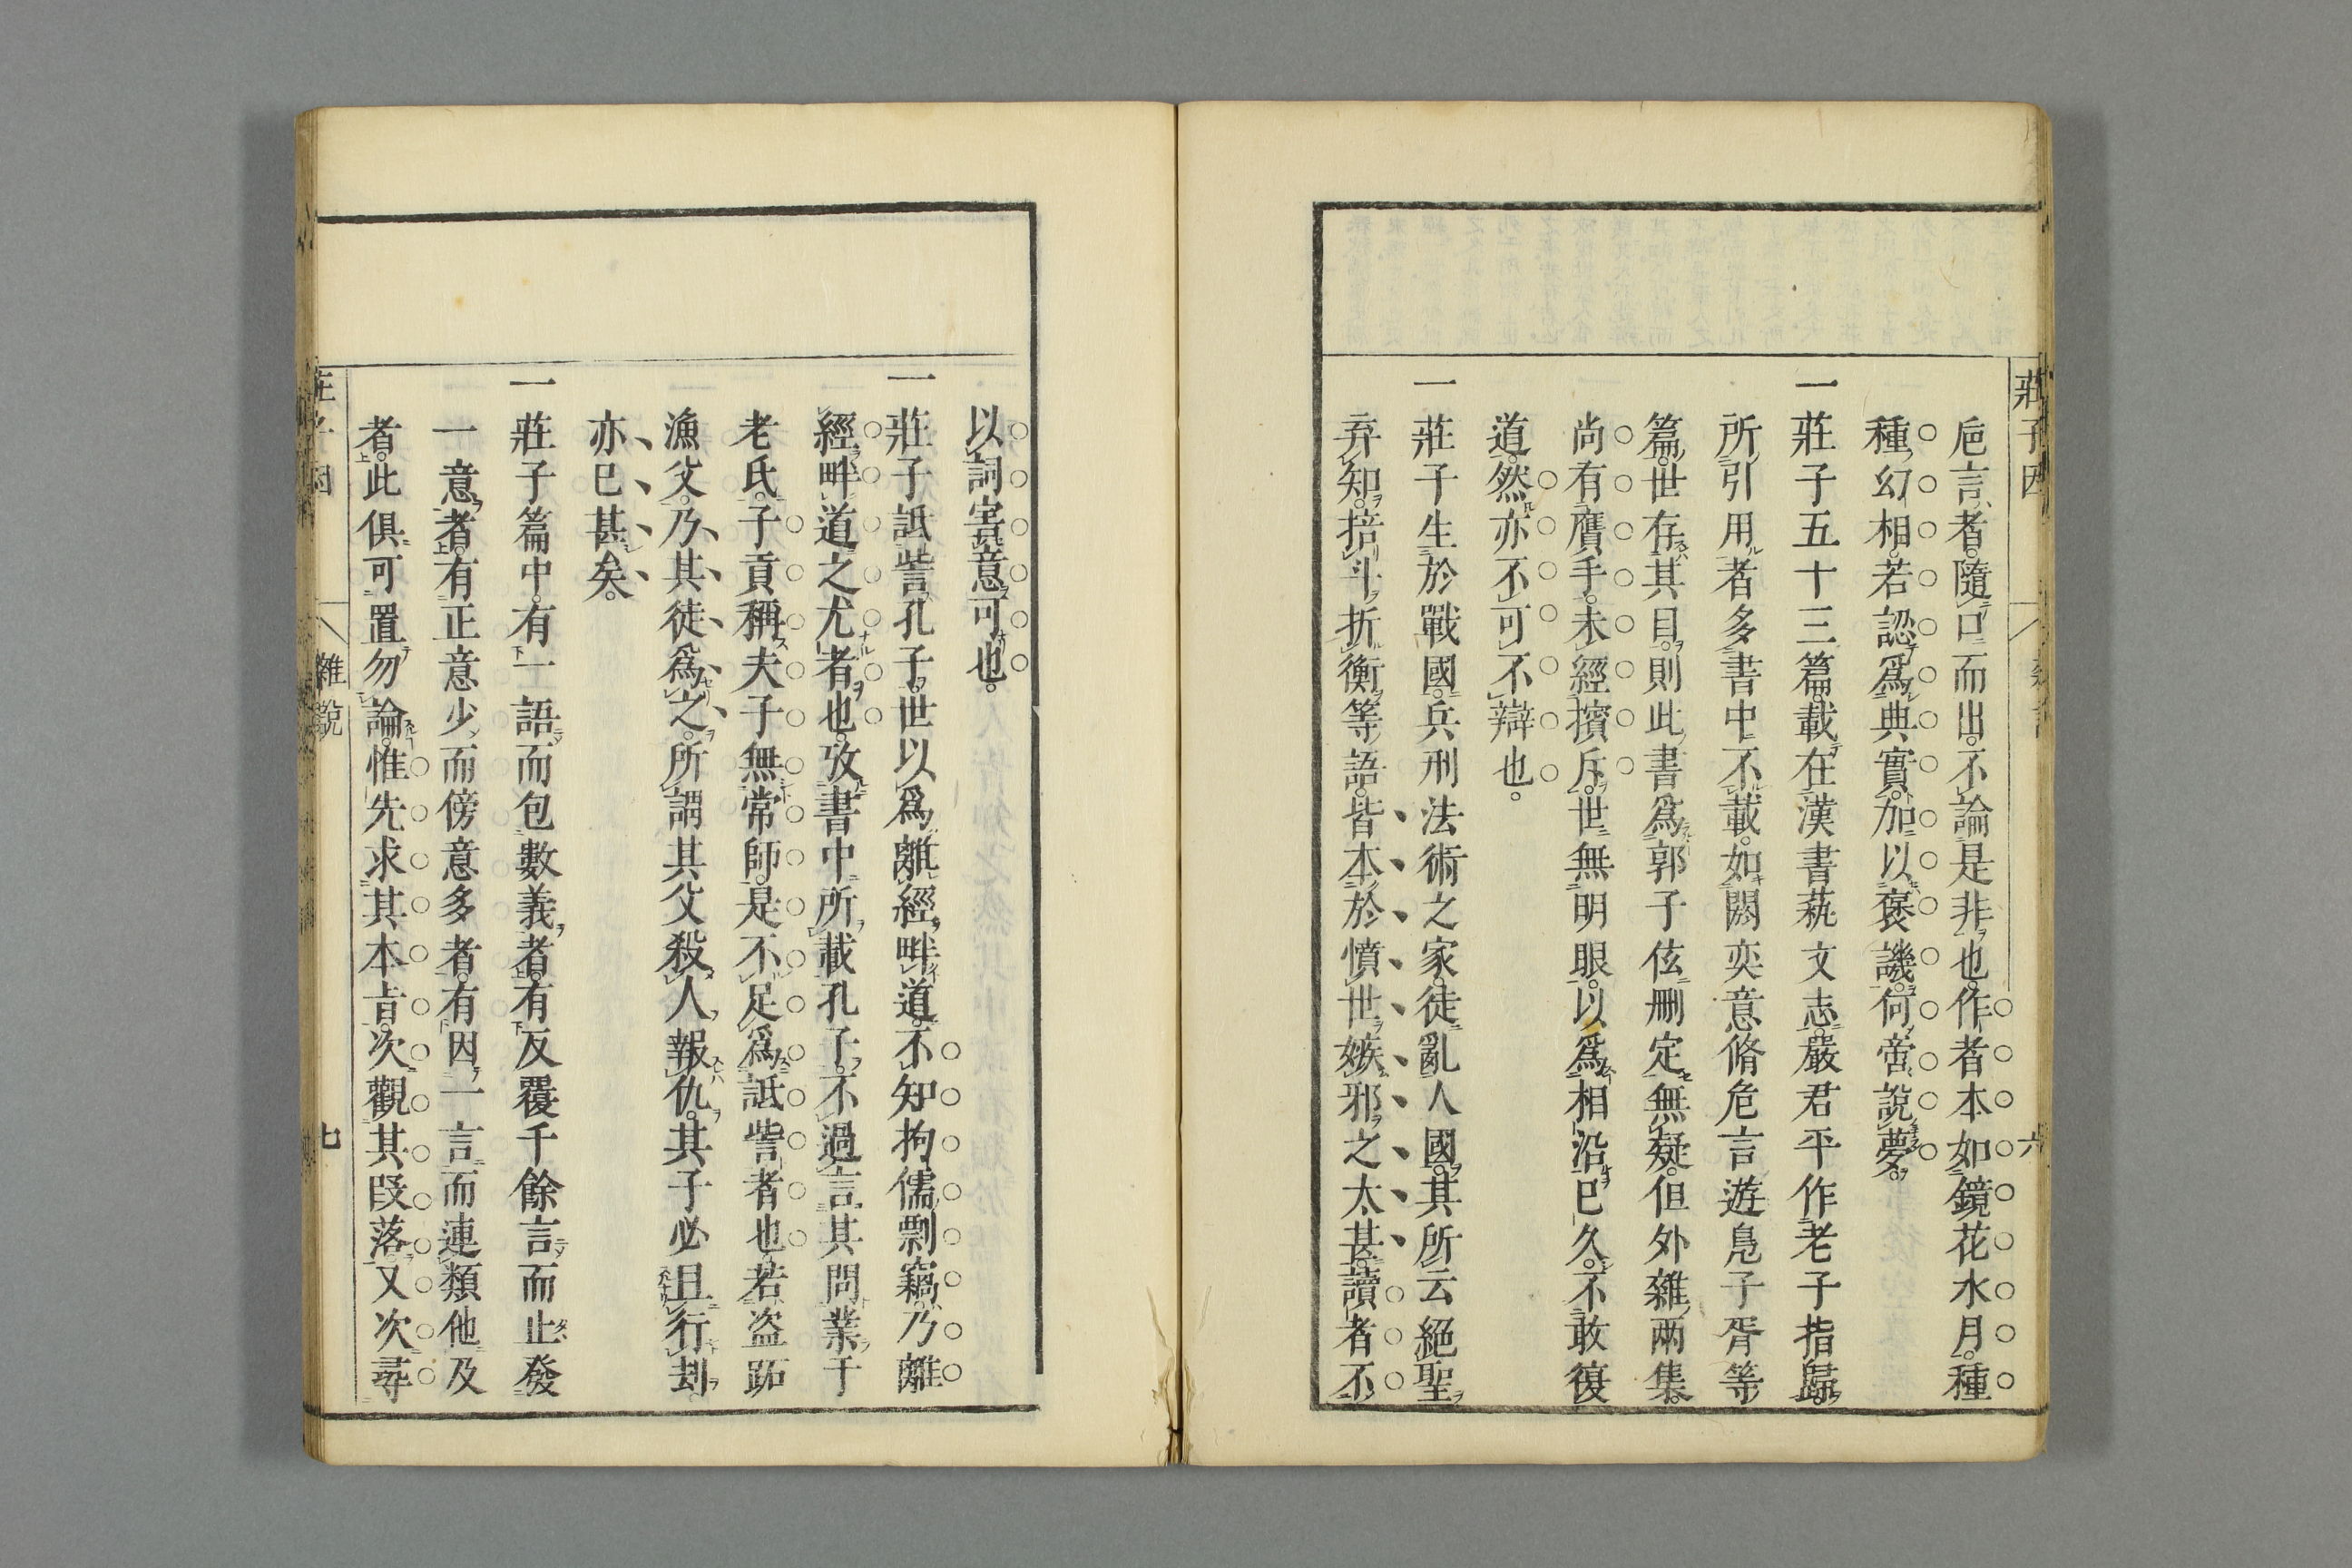 莊子因
雜說
六
巵言者隨口而出不論是非也作者本如鏡花水月種
種幻相若認爲典實加以褒譏何啻說夢
一莊子五十三篇載在漢書蓺文志嚴君平作老子指歸
所引用者多書中不載如閼奕意脩危言遊鳧子胥等
篇世存其目則此書爲郭子伭刪定無疑但外雜兩集
尚有贋手未經擯斥世無明眼以爲相沿已久不敢復
道然亦不可不辯也
一莊子生於戰國兵刑法術之家徒亂人國其所云絕聖
弃知掊斗折衡等語皆本於憤世嫉邪之太甚讀者不
以詞害意可也
一莊子詆訾孔子世以爲離經畔道不知拘儒剽竊乃離
經畔道之尤者也攷書中所載孔子不過言其問業于
老氏子貢稱夫子無常師是不足爲詆訾者也若盜跖
漁父乃其徒爲之所謂其父殺人報仇其子必且行刦
亦已甚矣
一莊子篇中有一語而包數義者有反覆千餘言而止發
一意者有正意少而傍意多者有因一言而連類他及
者此俱可置勿論惟先求其本旨次觀其段落又次尋
莊子因
雜說
七